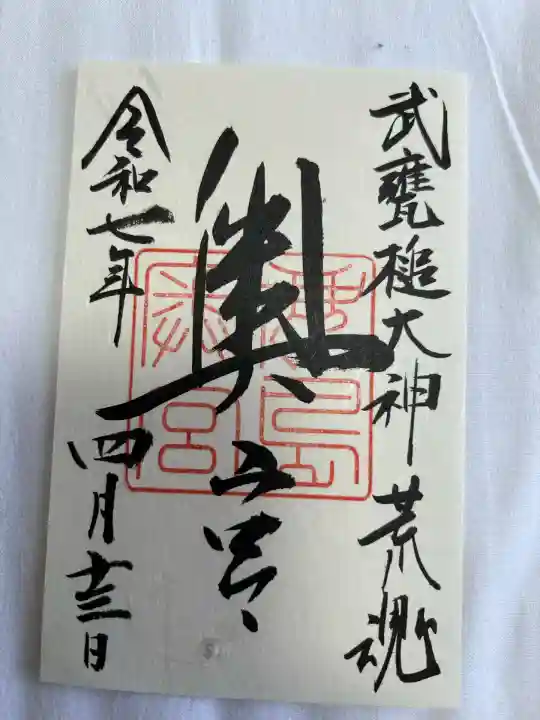 武甕槌大神荒魂
奥宮
鹿島
奥宮
令和七年
四月十三日